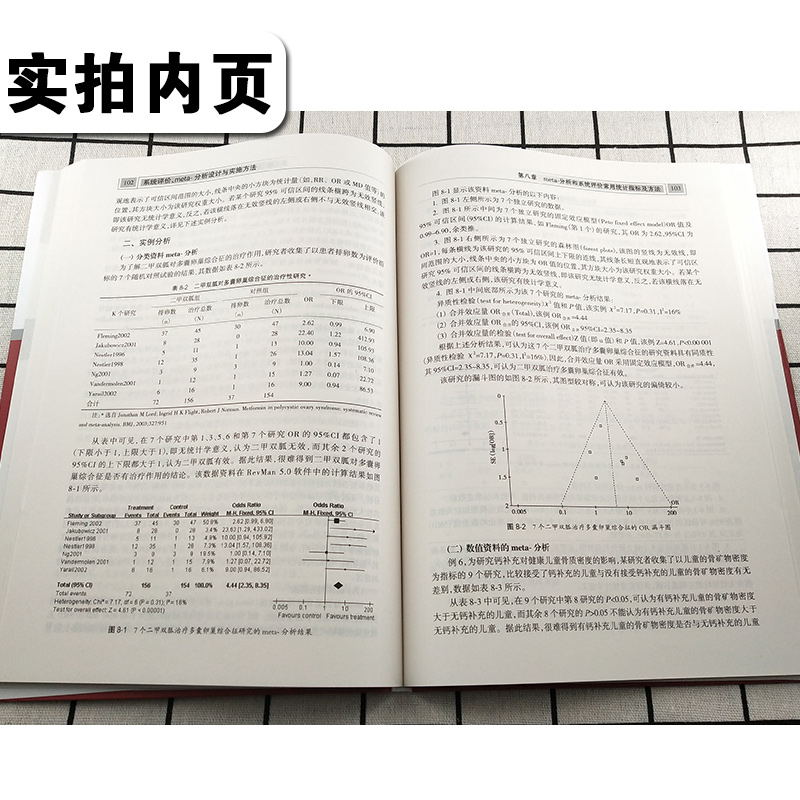 实拍内页
102 系统评价、meta-分析设计与实施方法
观地表示了可信区间范围的大小,线条中央的小方块为统计量(如,RR、OR 或 MD 值等)的
位置,其方块大小为该研究权重大小。若某个研究 95% 可信区间的线条横跨为无效竖线,
即该研究无统计学意义,反之,若该横线落在无效竖线的左侧或右侧不与无效竖线相交,该
研究有统计学意义,详见下述实例分析。
二、实例分析
(一) 分类资料 meta- 分析
为了解二甲双胍对多囊卵巢综合征的治疗作用,研究者收集了以患者排卵数为评价指
标的 7 个随机对照试验的结果,其数据如表 8-2 所示。
表 8-2 二甲双胍对多囊卵巢综合征的治疗性研究 *
K 个研究 二甲双胍组 对照组 OR OR 的 95%CI
排卵数 治疗总数 排卵数 治疗总数 下限 上限
(n) (N) (n) (N)
Fleming2002 37 45 30 47 2.62 0.99 6.90
Jakubowicz2001 8 28 0 28 22.40 1.22 412.93
Nestler1996 5 11 1 13 10.00 0.94 105.93
Nestler1998 12 35 1 26 13.04 1.57 108.36
Ng2001 3 9 3 9 1.00 0.14 7.10
Vandermolen2001 1 12 1 15 1.27 0.07 22.72
Yarail2002 6 16 1 16 9.00 0.94 86.53
合计 72 156 37 154
注:* 选自 Jonathan M Lord, Ingrid H K Flight, Robert J Norman. Metformin in polycystic ovary syndrome: systematic review
and meta-analysis. BMJ, 2003;327:951
从表中可见,在 7 个研究中第 1、3、5、6 和第 7 个研究 OR 的 95%CI 都包含了 1
(下限小于 1,上限大于 1),即无统计学意义,认为二甲双胍无效,而其余 2 个研究的
95%CI 的上下限都大于 1,认为二甲双胍有效。据此结果,很难得到二甲双胍对多囊卵
巢综合征是否有治疗作用的结论。该数据资料在 RevMan 5.0 软件中的计算结果如图
8-1 所示。
Treatment Control Odds Ratio Odds Ratio
Study or Subgroup Events Total Events Total Weight M-H, Fixed, 95% CI M-H, Fixed, 95% CI
Fleming 2002 37 45 30 47 50.8% 2.62 [0.99, 6.90]
Jakubowicz 2001 8 28 0 28 3.4% 23.63 [1.29, 433.02]
Nestler1996 5 11 1 13 4.9% 10.00 [0.94, 105.92]
Nestler1998 12 35 1 26 7.6% 13.04 [1.57, 108.36]
Ng2001 3 9 3 9 18.5% 1.00 [0.14, 7.10]
Vandermolen 2001 1 12 1 15 7.7% 1.27 [0.07, 22.72]
Yarail 2002 6 16 1 16 7.1% 9.00 [0.94, 86.52]
Total (95% CI) 156 154 100.0% 4.44 [2.35, 8.35]
Total events 72 37
Heterogeneity: Chi² = 7.17, df = 6 (P = 0.31); I² = 16%
Test for overall effect: Z = 4.61 (P < 0.00001)
0.005 0.1 1 10 200
Favours control Favours treatment
图 8-1 7 个二甲双胍治疗多囊卵巢综合征研究的 meta- 分析结果
第八章 meta-分析和系统评价常用统计指标及方法 103
图 8-1 显示该资料 meta- 分析的以下内容:
1. 图 8-1 左侧所示为 7 个独立研究的数据。
2. 图 8-1 所示中间为 7 个独立研究的固定效应模型(Peto fixed effect model)OR 值及
95% 可信区间(CI)的计算结果,如 Fleming(第 1 个)的研究,其 OR 为 2.62,95%CI 为
0.99~6.90,余类推。
3. 图 8-1 右侧所示为 7 个独立研究的森林图(forest plots),该图的竖线为无效线,即
OR=1,每条横线为该研究的 95% 可信区间上下限的连线,其线条长短直观地表示了可信区
间范围的大小,线条中央的小方块为 OR 值的位置,其方块大小为该研究权重大小。若某个
研究 95% 可信区间的线条横跨为无效竖线,即该研究无统计学意义,反之,若该横线落在无
效竖线的左侧或右侧,该研究有统计学意义。
4. 图 8-1 中间底部所示为该 7 个研究的 meta- 分析结果:
异质性检验(test for heterogeneity)χ² 值和 P 值,该实例 χ²=7.17,P=0.31,I²=16%
(1) 合并效应量 OR合并(Total),该例 OR合并=4.44
(2) 合并效应量 OR合并的 95%CI,该例 OR合并 95%CI=2.35~8.35
(3) 合并效应量的检验(test for overall effect)Z 值(即 u 值)和 P 值,该例 Z=4.61,P<0.00 001
根据上述分析结果,可认为这 7 个二甲双胍治疗多囊卵巢综合征的研究资料具有同质性
(异质性检验 χ²=7.17,P=0.31,I²=16%)。因此,合并效应量 OR 采用固定效应模型,OR合并=4.44,
其 95%CI=2.35~8.35,可认为二甲双胍治疗多囊卵巢综合征有效。
该研究的漏斗图的如图 8-2 所示,其图型较对称,可认为该研究的偏倚较小。
SE (log[OR])
0
0.5
1
1.5
2
0.005 0.1 1 10 200
OR
图 8-2 7 个二甲双胍治疗多囊卵巢综合征的 OR 漏斗图
(二) 数值资料的 meta- 分析
例 6,为研究钙补充对健康儿童骨质密度的影响,某研究者收集了以儿童的骨矿物密度
为指标的 9 个研究,比较接受了钙补充的儿童与没有接受钙补充的儿童的骨矿物密度有无
差别,数据如表 8-3 所示。
从表 8-3 中可见,在 9 个研究中第 8 研究的 P<0.05,可认为有钙补充儿童的骨矿物密度
大于无钙补充的儿童,而其余 8 个研究的 P>0.05 不能认为有钙补充儿童的骨矿物密度大于
无钙补充的儿童。据此结果,很难得到有钙补充儿童的骨矿物密度是否与无钙补充的儿童